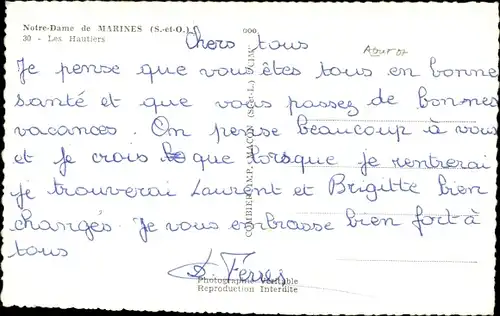 Notre-Dame de MARINES (S.-et-O.)
30 - Les Hautiers
Chers tous
Je pense que vous êtes tous en bonne
santé et que vous passez de bonnes
vacances. On pense beaucoup à vous
et je crois que lorsque je rentrerai
je trouverai Laurent et Brigitte bien
changés. Je vous embrasse bien fort à
tous
Photographie Véritable
Reproduction Interdite
COMBIER IMP. MACON (S.-et-L.)